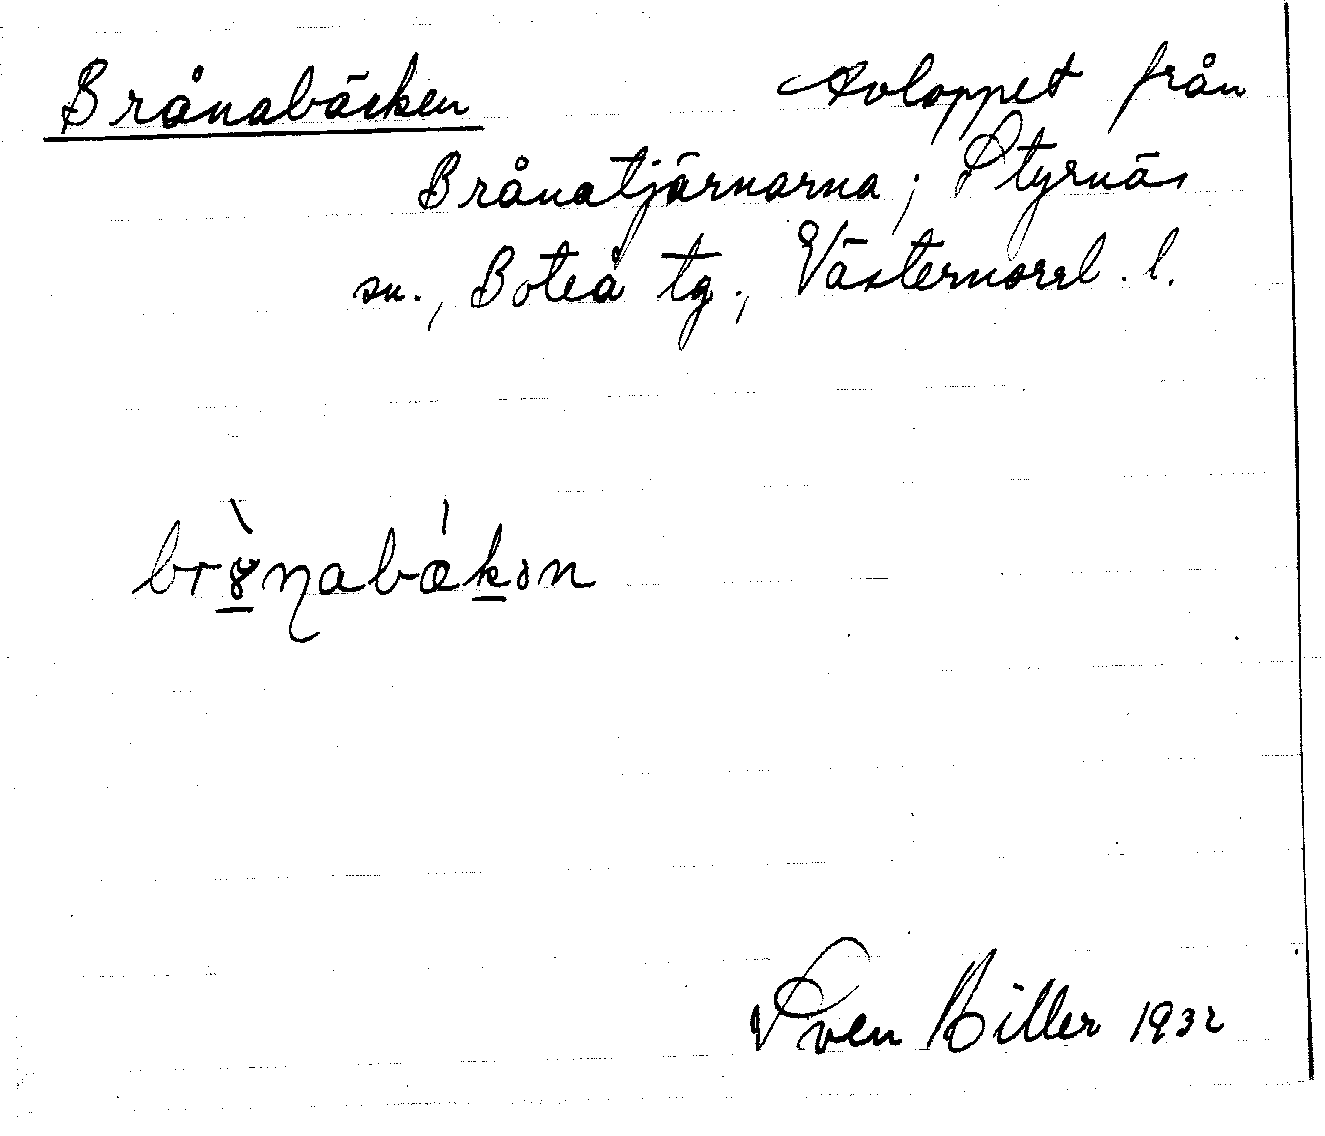 Brånabäcken Avloppet från
Brånatjärnarna; Styrnäs
sn., Boteå tg., Västernorrl. l.
Sven Biller 1932